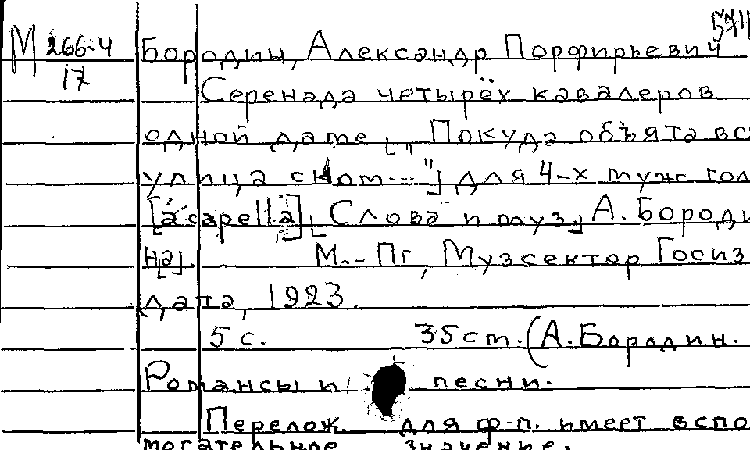 М 266-4 Бородин, Александр Порфирьевич
17 Серенада четырёх кавалеров
одной даме [„Покуда объята вс
улица сном..."] для 4-х муж. гол
[a capella] [Слова и муз.] А. Бороди
на]. М.-Пг, Музсектор Госиз
дата, 1923.
5 с. 35 ст. (А. Бородин.
Романсы и песни.
Перелож. для ф-п. имеет вспо
могательное значение.